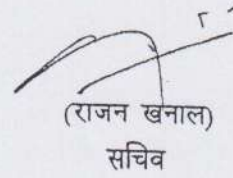 (राजन खनाल)
सचिव